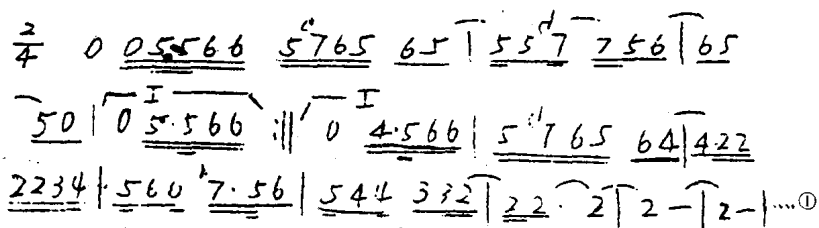 2/4 0 05.566 5765 65 | 557 756 | 65
50 | 0 I 5.566 :‖ 0 I 4.566 | 5765 64 | 4.22
2234 | 560 7.56 | 544 332 | 22. 2 | 2 - | 2 - | ····①